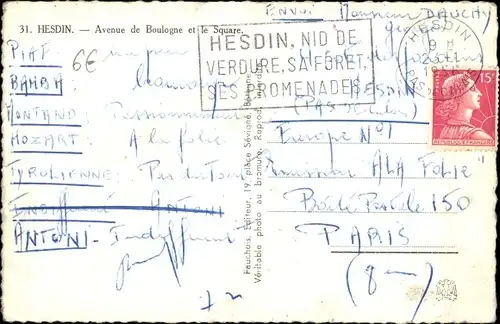 31. HESDIN. — Avenue de Boulogne et le Square.
ENVOI Monsieur DAUCHY
6€
HESDIN, NID DE
VERDURE, SA FORÊT,
SES PROMENADES
HESDIN
9 H
PAS DE CALAIS
15F
REPUBLIQUE FRANÇAISE
PIAF un peu
BAMBA:
MONTAND Passionnément
MOZART: A la folie
TYROLIENNE: Pas du tout
ANTONI - Indifférent
HESDIN
(PAS de Calais)
Europe N°1
Emission "A LA FOLIE"
Boîte Postale 150
PARIS
(8e)
Fauchois, Editeur, 19, place Sévigné, Béthune
Véritable photo au bromure. Reprod. interdite